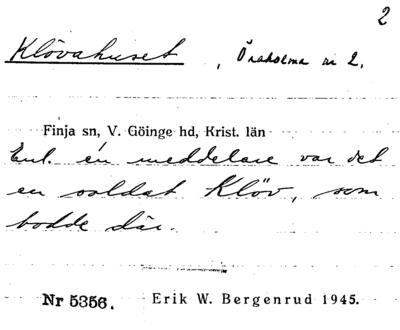 2
Klövahuset, Öraholma nr 2.
Finja sn, V. Göinge hd, Krist. län
Enl. en meddelare var det
en soldat Klöv, som
bodde där.
Nr 5356. Erik W. Bergenrud 1945.